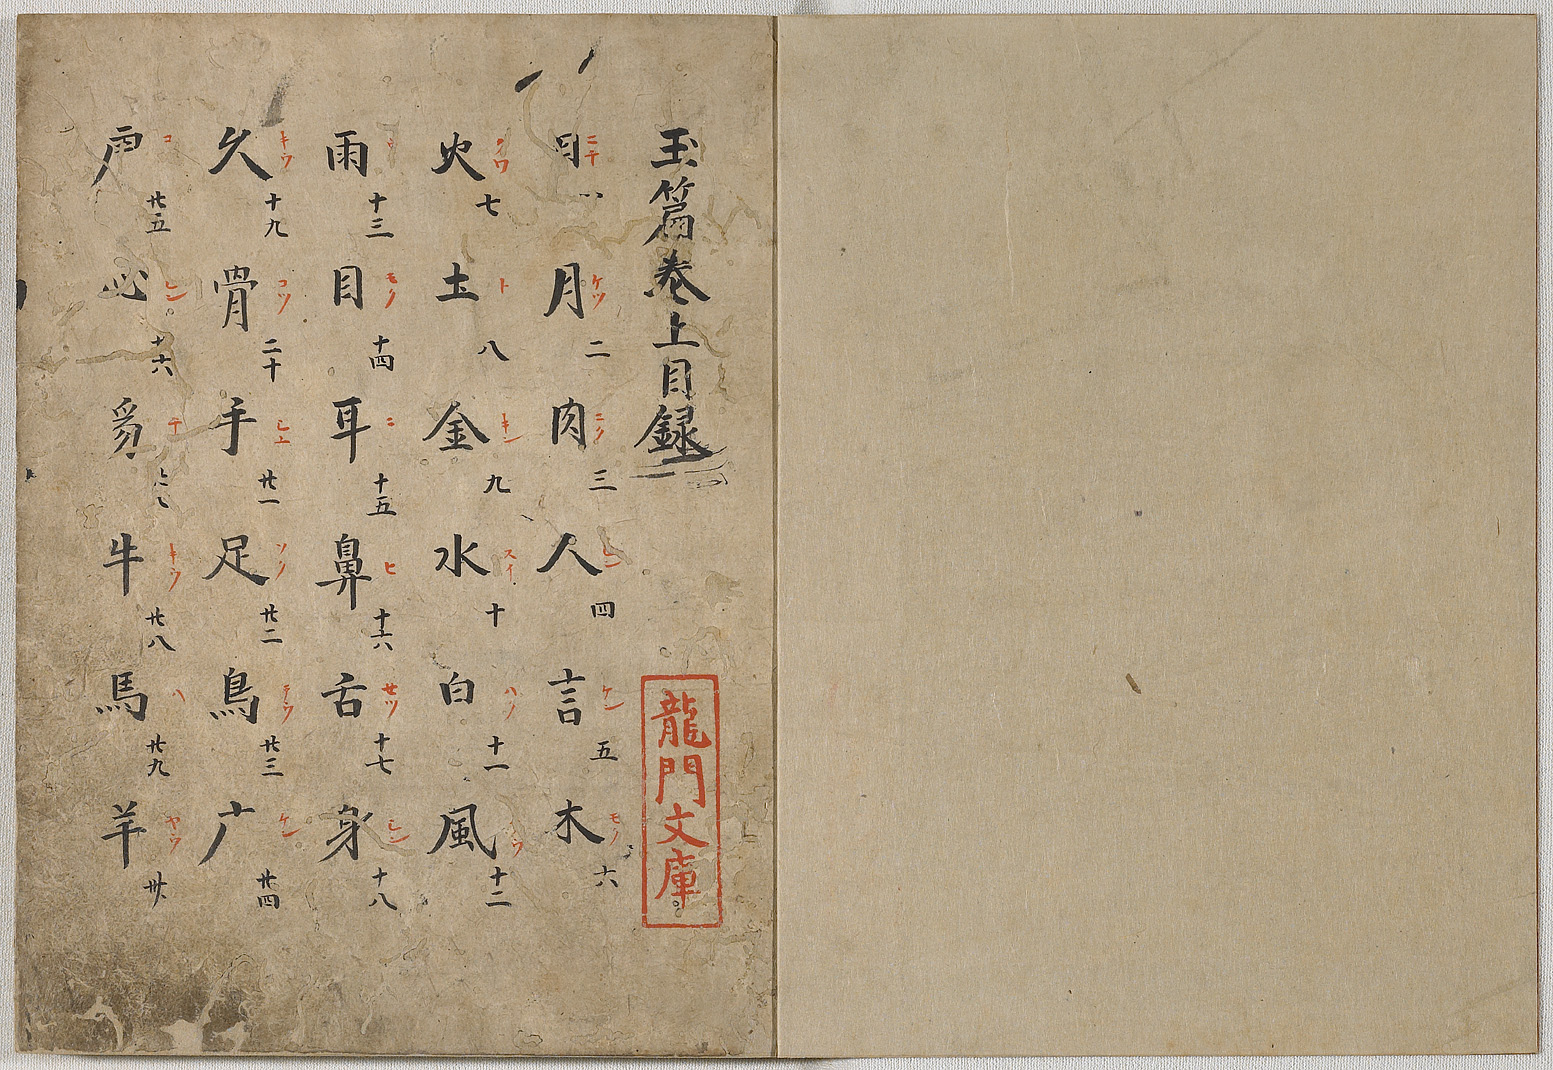 玉篇巻上目録
龍門文庫
日 ニチ 一 月 ケツ 二 肉 ニク 三 人 シン 四 言 ケン 五 木 モク 六
火 クワ 七 土 ト 八 金 キン 九 水 スイ 十 白 ハク 十一 風 フウ 十二
雨 十三 目 モク 十四 耳 ニ 十五 鼻 ヒ 十六 舌 セツ 十七 身 シン 十八
久 キウ 十九 骨 コツ 二十 手 廿一 足 ソク 廿二 鳥 テウ 廿三 广 ケン 廿四
コ 廿五 心 シン 六 豸 チ 牛 キウ 廿八 馬 ハ 廿九 羊 ヤウ 卅